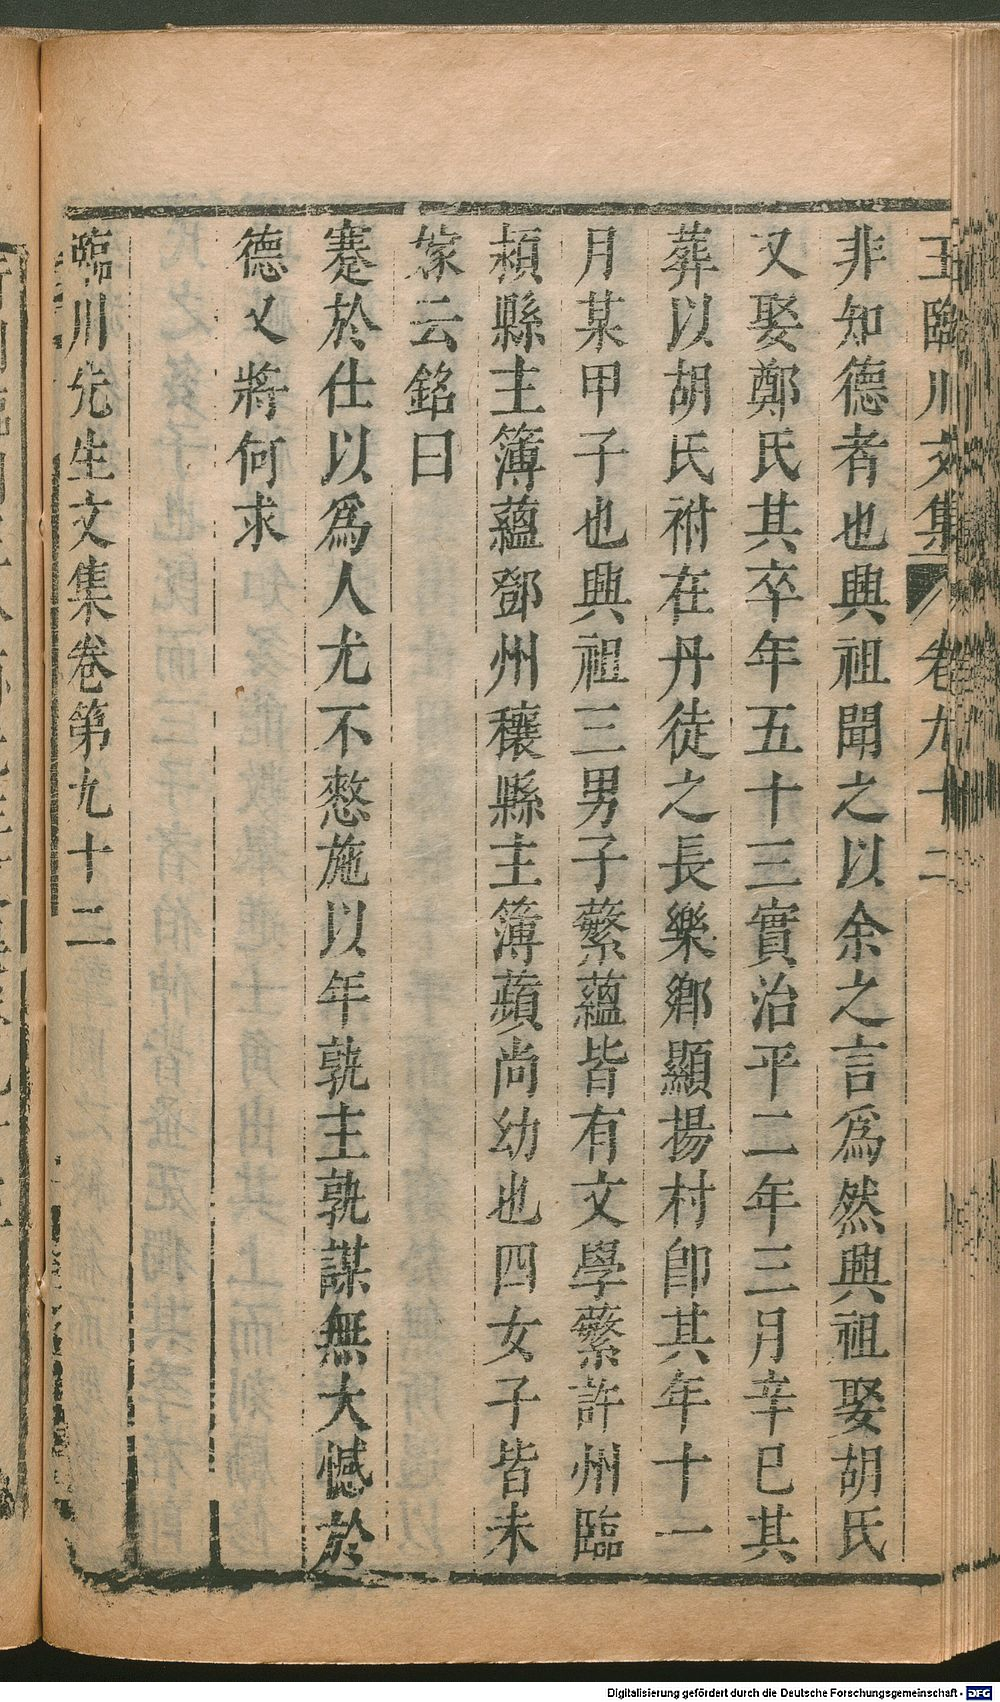 王臨川文集 卷九十二
非知德者也興祖聞之以余之言爲然興祖娶胡氏
又娶鄭氏其卒年五十三實治平二年三月辛巳其
葬以胡氏祔在丹徒之長樂鄉顯揚村卽其年十一
月某甲子也興祖三男子蘩蘊皆有文學蘩許州臨
潁縣主簿蘊鄧州穰縣主簿蘋尚幼也四女子皆未
嫁云銘曰
蹇於仕以爲人尤不慭施以年孰主孰謀無大憾於
德又將何求
臨川先生文集卷第九十二
Digitalisierung gefördert durch die Deutsche Forschungsgemeinschaft - DFG